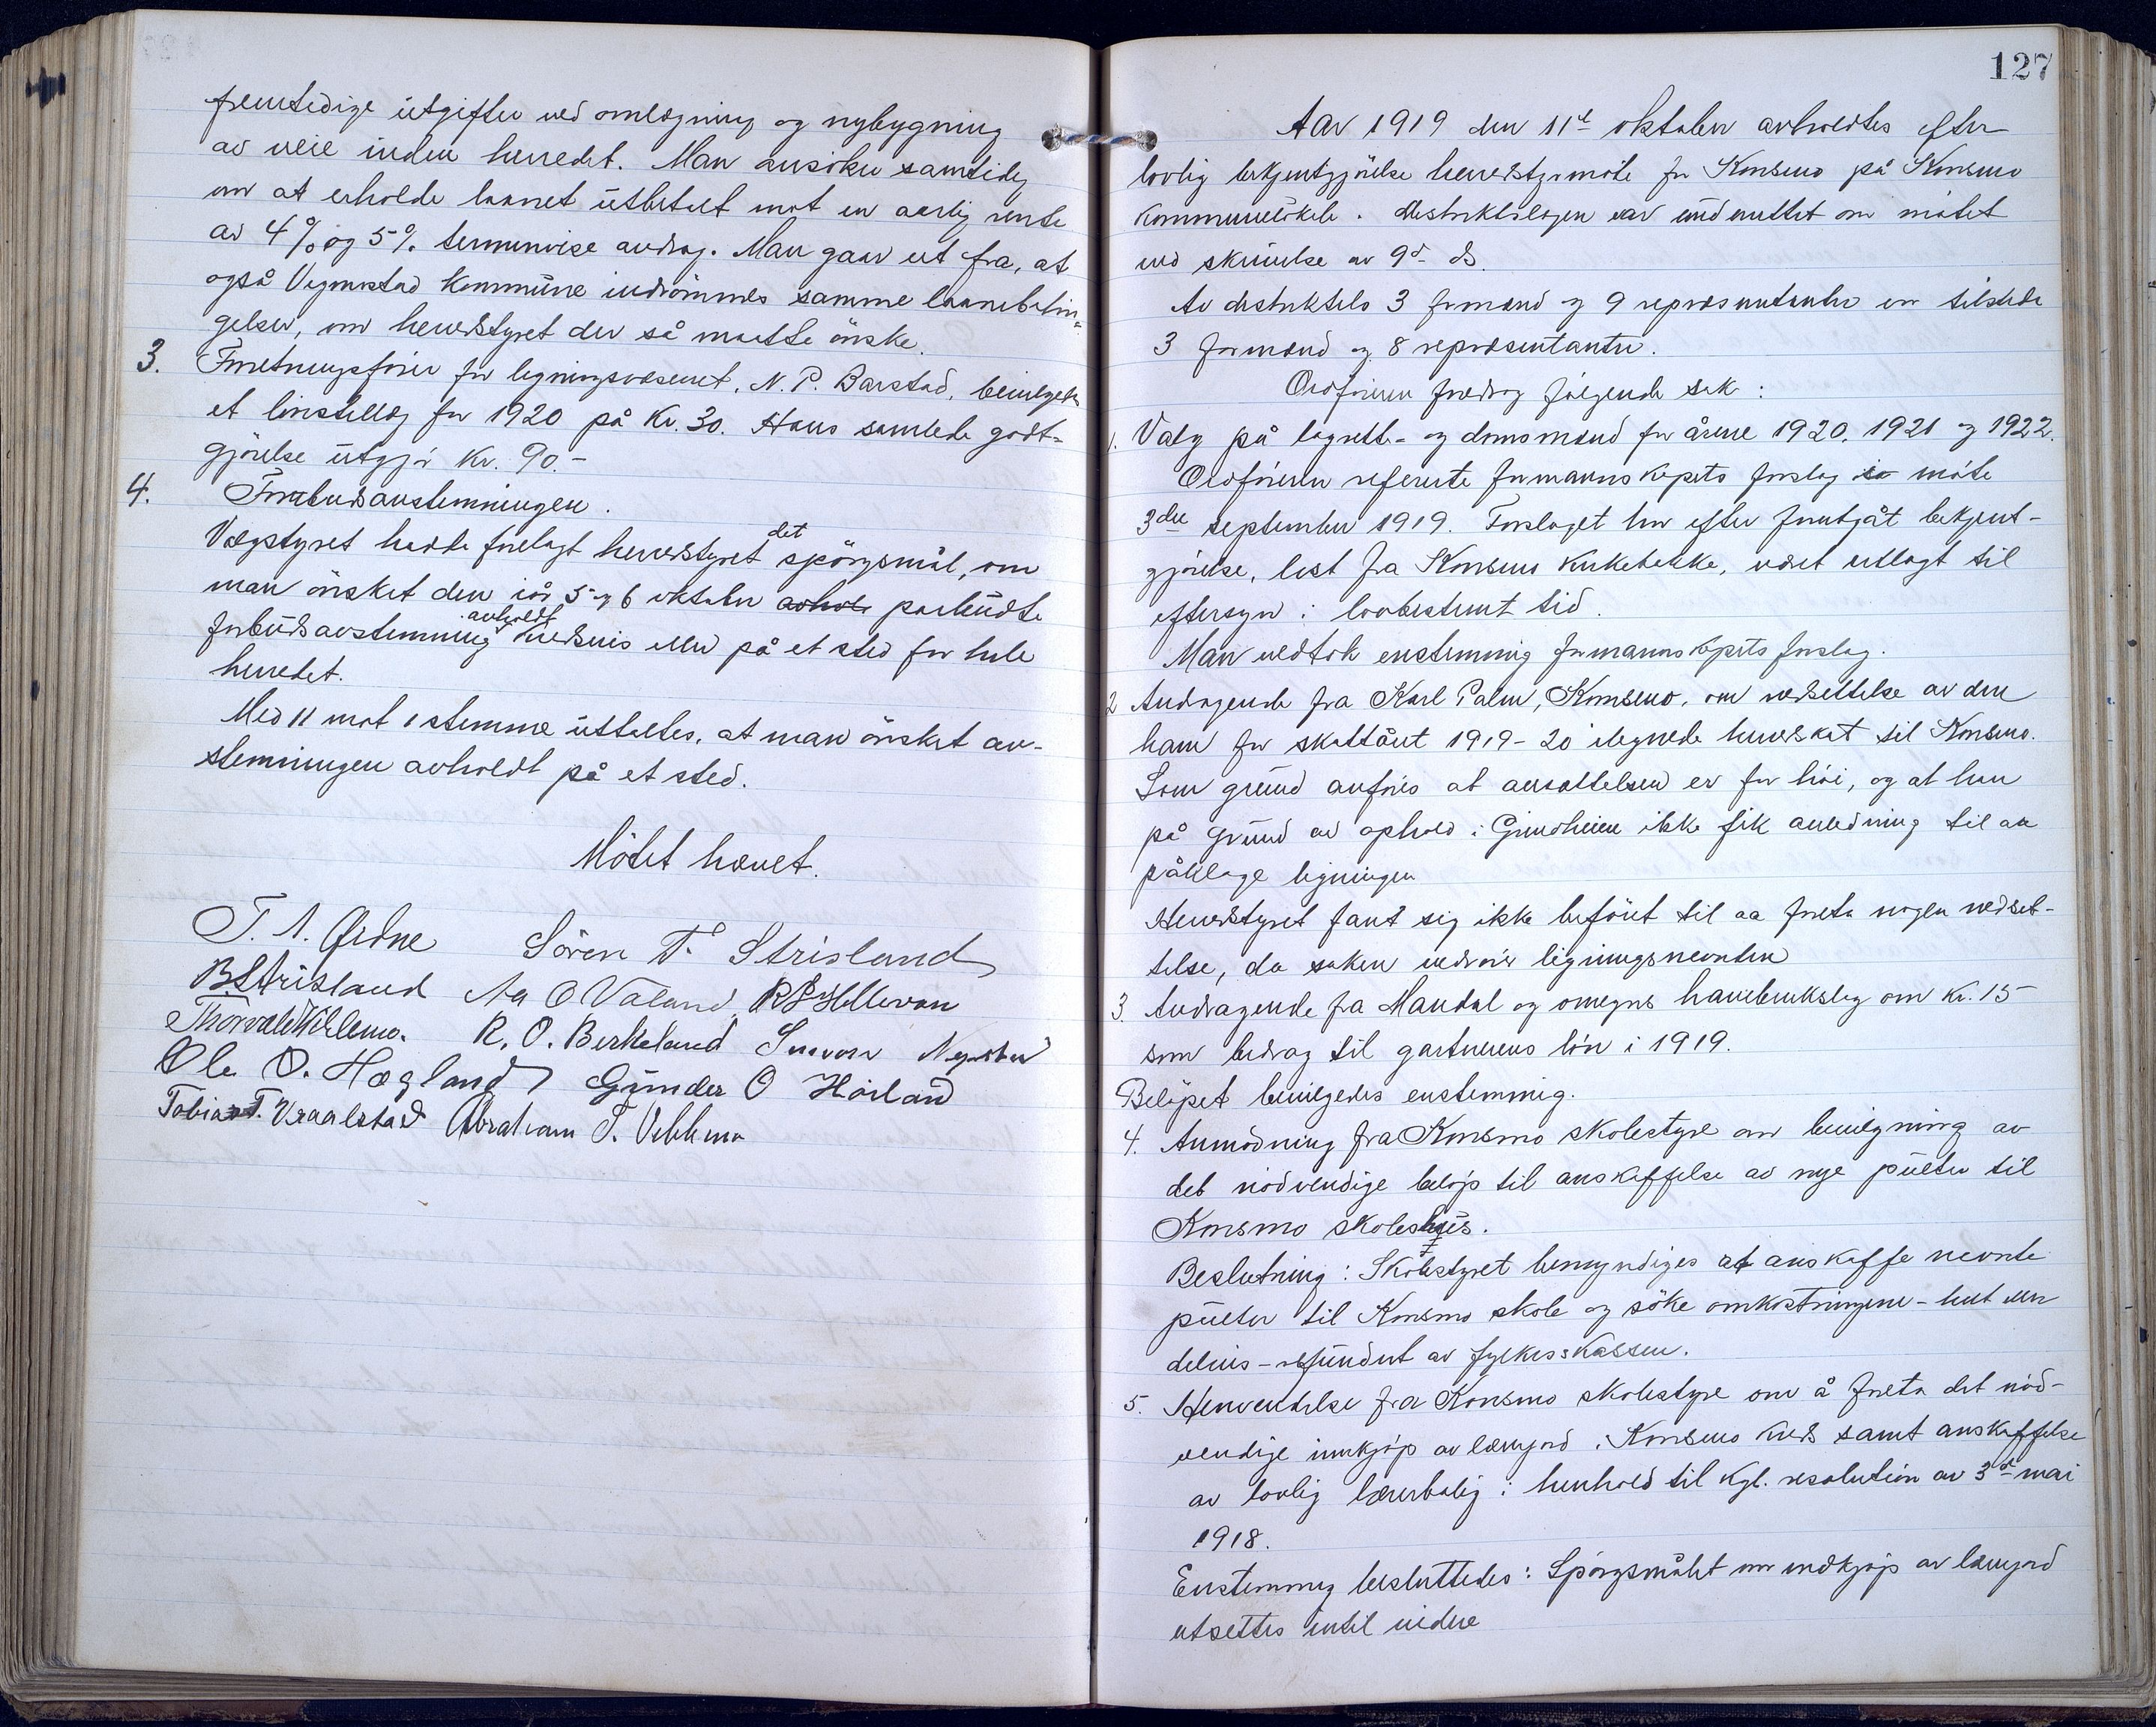 fremtidige utgifter ved omlægning og nybygning
av veie inden herredet. Man ansöker samtidig
om at erholde laanet utbetalt mot en aarlig rente
av 4% og 5% terminvise avdrag. Man gaar ut fra, at
også Vigmostad kommune indrömmes samme laanebetin=
gelser, om herredstyret der så maatte önske.
3. Forretningsförer for ligningsvæsenet, N. P. Barstad, bevilgedes
et lönstillæg for 1920 på Kr. 30. Hans samlede godt=
gjörelse utgjör Kr. 90.-
4. Forbudsavstemningen.
Valgstyret hadde forelagt herredstyret det spörgsmål, om
man önsket den iår 5 og 6 oktober avhol paabudte
forbudsavstemning avholdt kredsvis eller på et sted for hele
herredet.
Med 11 mot 1 stemme uttaltes, at man önsket av-
stemningen avholdt på et sted.
Mötet hævet.
T. A. Ørdne Sören T. Strisland
B. Strisland Aa O Valand R P Hellevan
Thorvald Viblemo. R. O. Birkeland
Ole O. Hægland Gunder O Hörland
Tobias T. Vraalstad Abraham T. Viblemo
127
Aar 1919 den 11te oktober avholdtes efter
lovlig bekjentgjörelse herredstyremöte for Konsmo på Konsmo
kommunelokale. Distriktslegen var underrettet om mötet
ved skrivelse av 9d ds.
Av distriktets 3 formænd og 9 repræsentanter var tilstede
3 formænd og 8 repræsentanter.
Ordföreren foredrog fölgende sak:
1. Valg på lagrette- og domsmænd for årene 1920, 1921 og 1922.
Ordföreren refererte formannskapets forslag i möte
3die september 1919. Forslaget har efter forutgåt bekjent-
gjörelse, lest fra Konsmo kirkebakke, været utlagt til
eftersyn i lovbestemt tid.
Man vedtok enstemmig formannskapets forslag.
2 Andragende fra Karl Palm, Konsmo, om nedsettelse av den
ham for skattåret 1919-20 ilignede herredskat til Konsmo.
Som grund anföres at ansættelsen er for höi, og at han
på grund av ophold i Grindheim ikke fik anledning til aa
påklage ligningen
Herredstyret fant sig ikke beföiet til aa foreta nogen nedset-
telse, da saken vedrörer ligningsnevnden
3. Andragende fra Mandal og omegns havebrukslag om Kr. 15
som bidrag til gartnerens lön i 1919.
Belöpet bevilgedes enstemmig.
4. Anmodning fra Konsmo skolestyre om bevilgning av
det nödvendige belöp til anskaffelse av nye pulter til
Konsmo skoleshus.
Beslutning: Skolestyret bemyndiges at anskaffe nevnte
pulter til Konsmo skole og söke omkostningene - helt eller
delvis - refundert av fylkesskassen.
5. Henvendelse fra Konsmo skolestyre om å foreta det nöd-
vendige innkjöp av lærerjord i Konsmo kreds samt anskaffelse
av lovlig lærerbolig i henhold til kgl. resolution av 3de mai
1918.
Enstemmig besluttedes: Spörgsmålet om indkjöp av lærerjord
utsettes intil videre